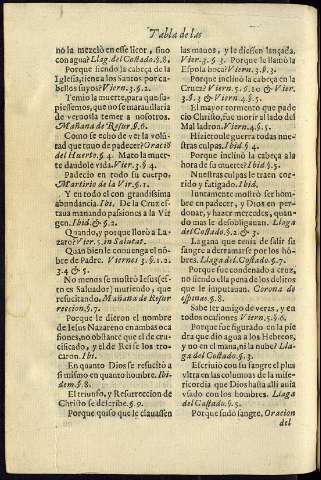 Tabla de las
no la mezclò en esse licor, sino
con agua? Llag. del Costado. §. 8.
Porque siendo la cabeça de la
Iglesia, tiene a los Santos por ca-
bellos suyos? Viern. 3. §. 2.
Temio la muerte, para que su-
piessemos, que no se maravillaria
de vernosla temer a nosotros.
Mañana de Resur §. 6.
Como se echò de ver la volũ-
tad que tuvo de padecer? Oracio
del Huerto. §. 4. Mato la muer-
te dandole vida. Vier. 3. §. 4.
Padecio en todo su cuerpo,
Martirio de la Vir §. 1.
Y en todo el con grandissima
abundancia. Ibi. De la Cruz es-
taua manando passiones a la Vir
gen. Ibid. & §. 2.
Quando, y porque llorò a La-
zaro? Vier. 5. in Salutat.
Quan bien le conuenga el nõ-
bre de Padre. Viernes 3. §. 1. 2.
3. 4 & 5.
No menos se mostrò Iesus (es-
to es Salvador) muriendo, que
resucitando. Mañana de Resur
reccion. §. 7.
Porque le dieron el nombre
de Iesus Nazareno en ambas oca
siones, no obstante que el de cru-
cificado, y el de Rei se los tro-
caron. Ibi.
En quanto Dios se resucitò a
si mismo en quanto hombre. Ibi-
dem. §. 8.
El triunfo, y Resurreccion de
Christo se descrive. §. 9.
Porque quiso que le clauassen
las manos, y le diessen lançada.
Vier. 3. §. 3. Porque le llamò la
Esposa boca? Viern. 3. §. 3.
Porque inclinò la cabeça en la
Cruz? Viern. 5. §. 10 & Vier.
3. §. 3 & Viern 4. §. 5.
El mayor tormento que pade
cio Christo, fue morir al lado del
Mal ladron. Viern 4. §. 5.
Hizieronle guerra todas nues-
tras culpas. Ibid §. 4.
Porque inclinò la cabeça a la
hora de su muerte? Ibid §. 5.
Nuestras culpas le traen cor-
rido y fatigado. Ibid.
Iuntamente mostrò ser hom-
bre en padecer, y Dios en per-
donar, y hazer mercedes, quan-
do mas le desobligauan. Llaga
del Costado. §. 2 & 3.
La gana que tenia de salir su
sangre a derramarse por los hõ-
bres. Llaga del Costado. §. 7.
Porque fue condenado a cruz,
no siendo ella pena de los delitos
que le imputauan. Corona de
espinas. §. 8.
Sabe ser amigo de veras, y en
todos ocasiones Viern. 5. §. 6.
Porque fue figurado en la pie
dra que dio agua a los Hebreos,
y no en el mana, ni la nube? Lla-
ga del Costado. §. 3.
Escriuio con su sangre el plus
vltra en las colunas de la mise-
ricordia que Dios hasta alli auia
vsado con los hombres. Llaga
del Costado. §. 5.
Porque sudò sangre. Oracion
del